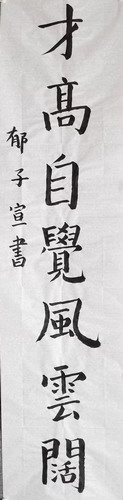 才髙自覺風雲闊
郁子宣書